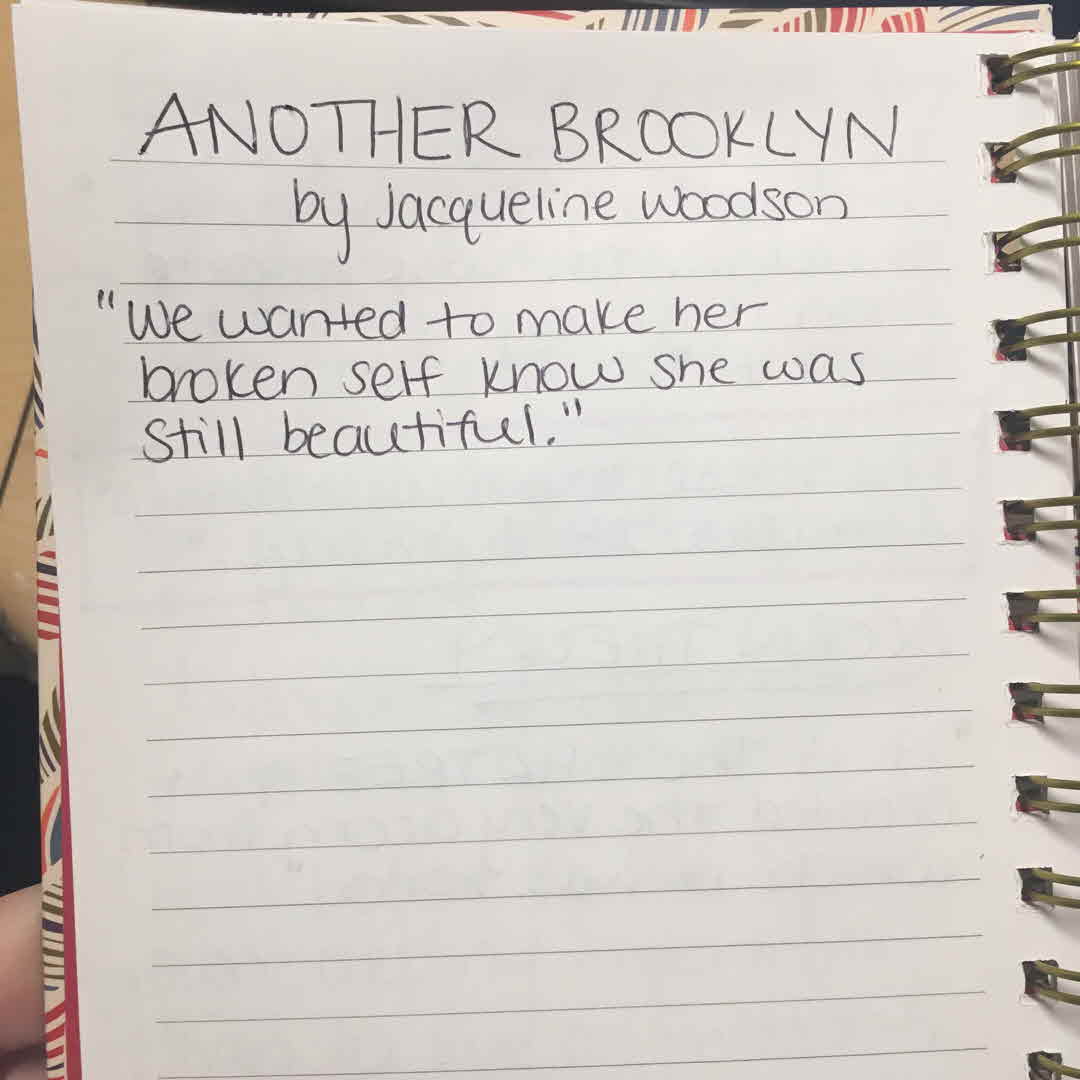 ANOTHER BROOKLYN
by Jacqueline Woodson
"We wanted to make her
broken self know she was
still beautiful."